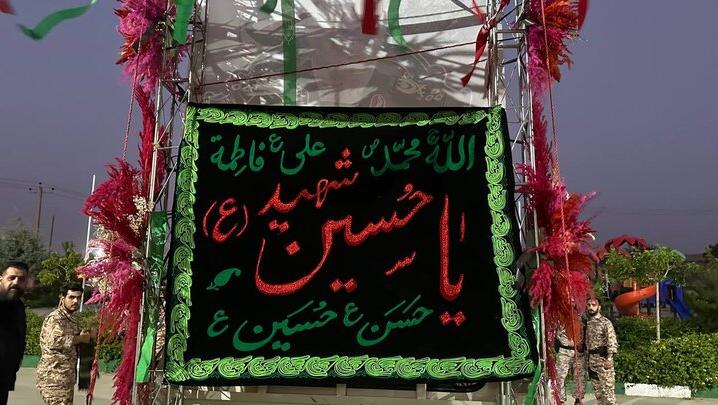 الله محمد ص علی ع فاطمة
یا حسین شهید (ع)
حسن ع حسین ع